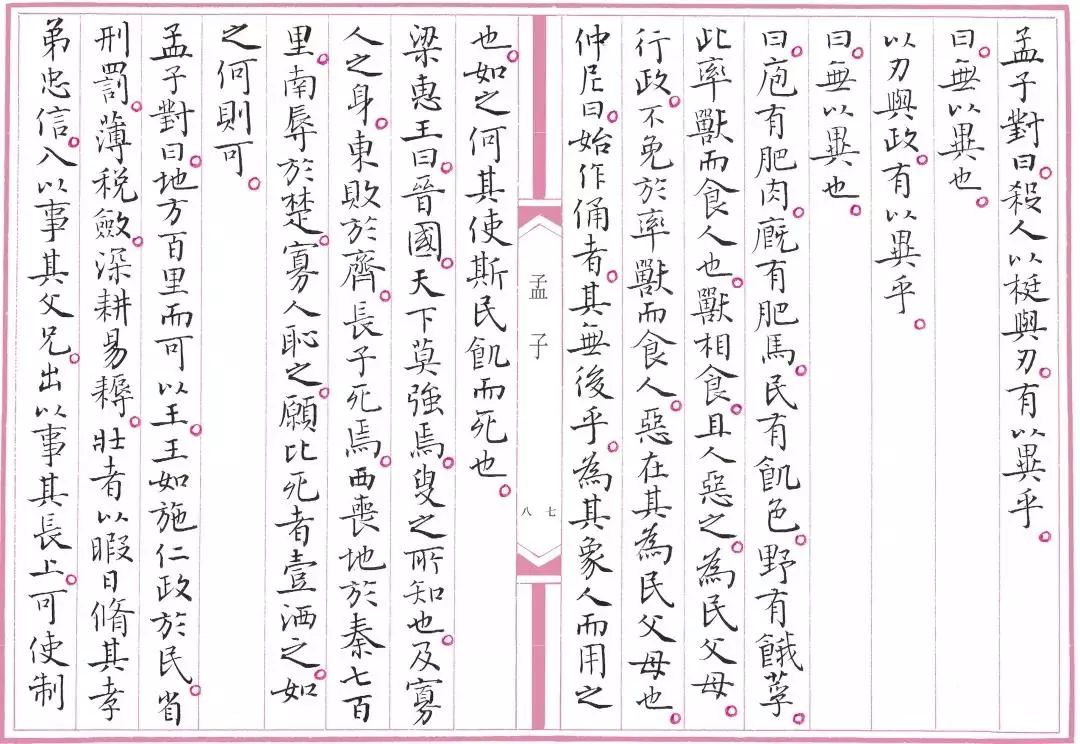 孟子對曰。殺人以梃與刃。有以異乎。
曰。無以異也。
以刃與政。有以異乎。
曰。無以異也。
曰。庖有肥肉。廄有肥馬。民有飢色。野有餓莩。
此率獸而食人也。獸相食。且人惡之。為民父母。
行政。不免於率獸而食人。惡在其為民父母也。
仲尼曰。始作俑者。其無後乎。為其象人而用之
孟子
七
八
也。如之何其使斯民飢而死也。
梁惠王曰。晉國。天下莫強焉。叟之所知也。及寡
人之身。東敗於齊。長子死焉。西喪地於秦七百
里。南辱於楚。寡人恥之。願比死者壹洒之。如
之何則可。
孟子對曰。地方百里而可以王。王如施仁政於民。省
刑罰。薄稅斂。深耕易耨。壯者以暇日脩其孝
弟忠信。入以事其父兄。出以事其長上。可使制